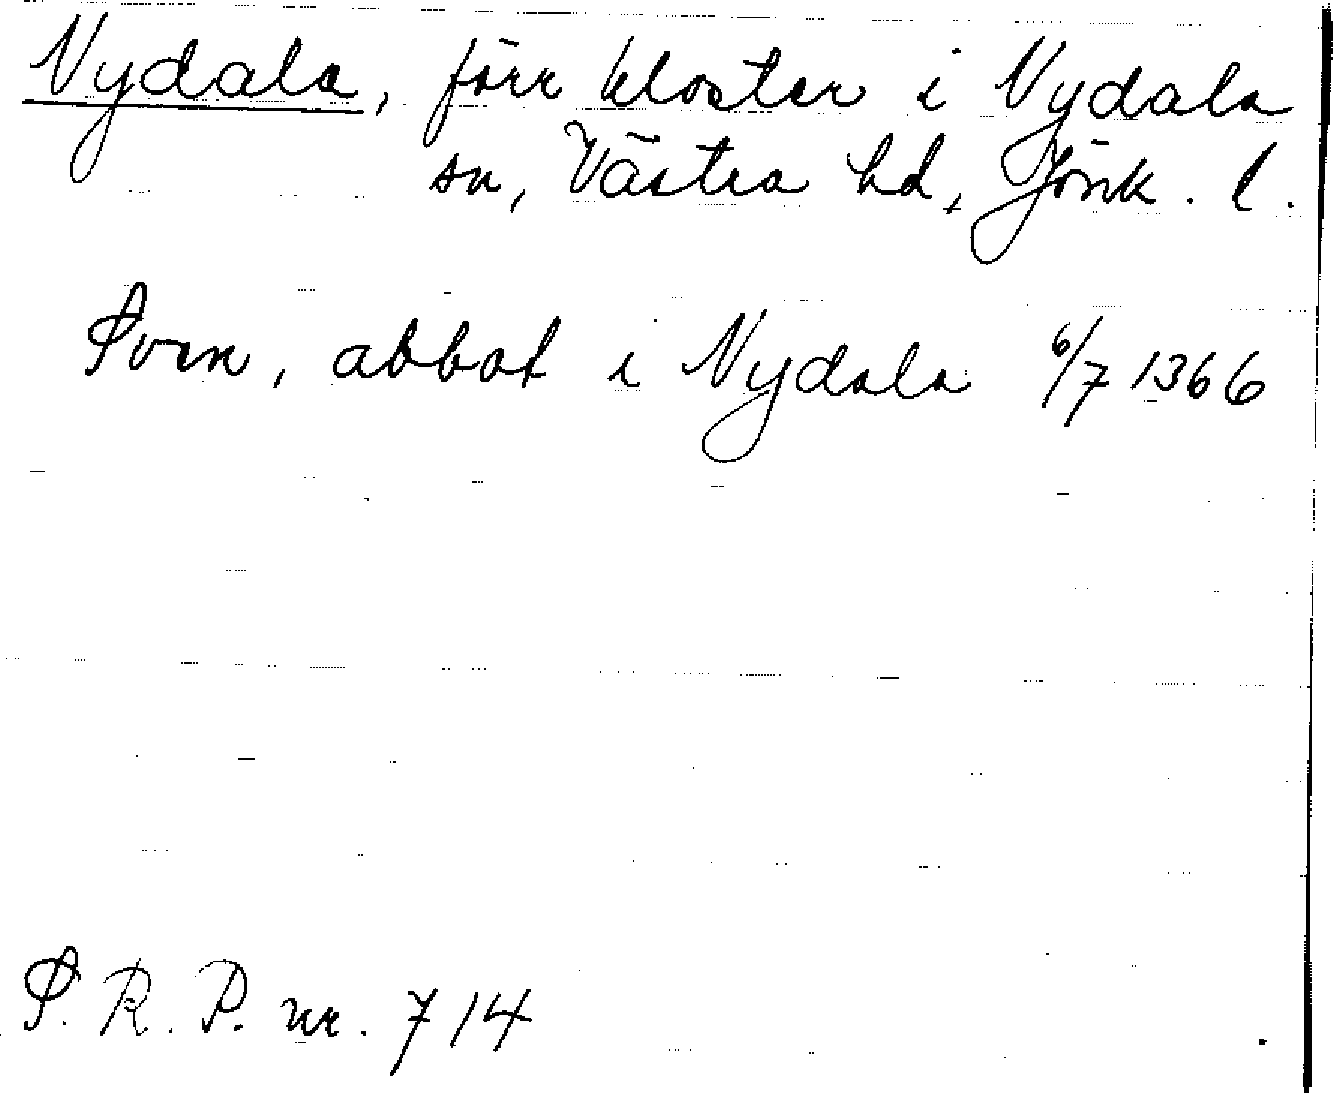 Nydala, förr kloster i Nydala
sn, Västra hd, Jönk. l.
Sven, abbot i Nydala 6/7 1366
S. R. P. nr. 714